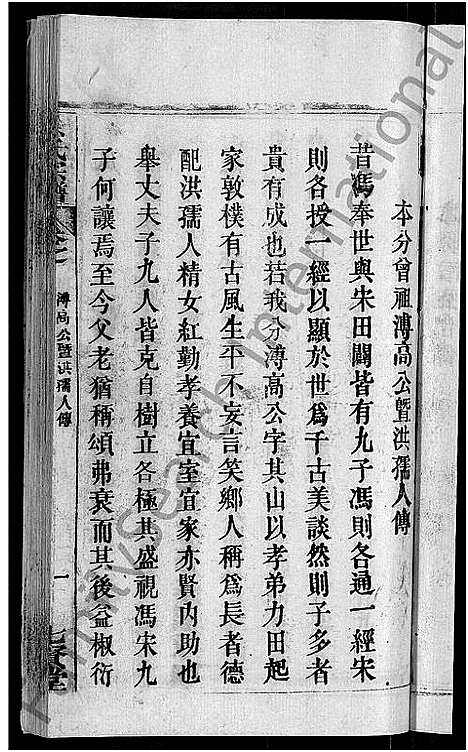 本分曾祖溥高公曁洪孺人傳
昔馮奉世與宋田闢皆有九子馮則各通一經宋
則各授一經以顯於世爲千古美談然則子多者
貴有成也若我分溥高公字其山以孝弟力田起
家敦樸有古風生平不妄言笑鄉人稱爲長者德
配洪孺人精女紅勤孝養宜室宜家亦賢內助也
舉丈夫子九人皆克自樹立各極其盛視馮宋九
子何讓焉至今父老猶稱頌弗衰而其後益椒衍
溥高公曁洪孺人傳
一
堂
familysearch International